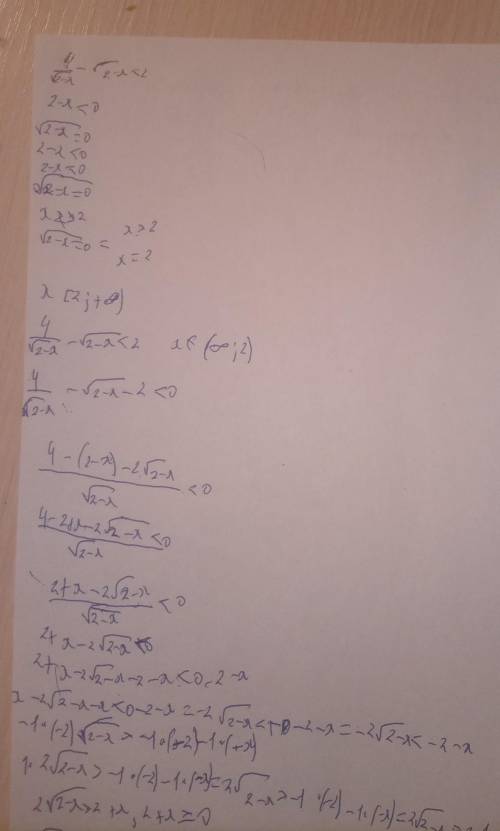 4/√2-x - √2-x < 2
2-x < 0
√2-x = 0
2-x < 0
2-x < 0
√2-x = 0
x > 2
√2-x = 0 = x > 2
x = 2
x [2; +∞)
4/√2-x - √2-x < 2 x ∈ (∞; 2)
4/√2-x - √2-x - 2 < 0
4-(2-x)-2√2-x / √2-x < 0
4-2+x-2√2-x / √2-x < 0
2+x-2√2-x / √2-x < 0
2+x-2√2-x < 0
2+x-2√2-x-2-x < 0-2-x
x-2√2-x-x < 0-2-x = -2√2-x < 0-2-x = -2√2-x < -2-x
2√2-x > 2+x, 2+x ≥ 0